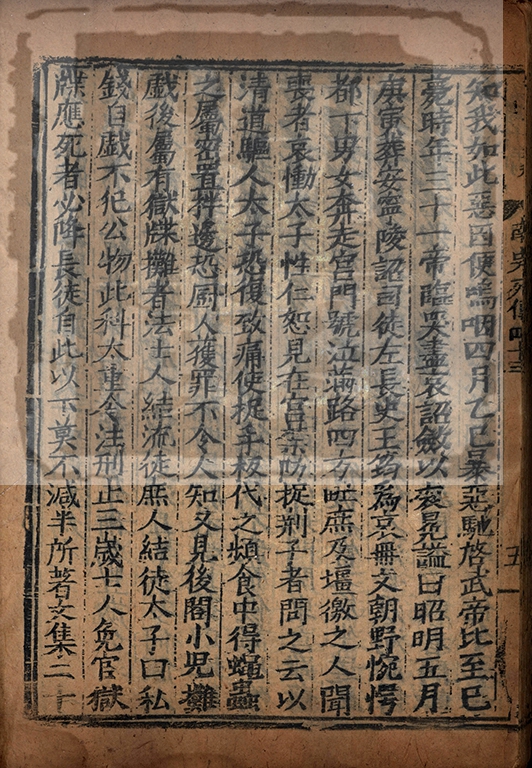 南史列傳四十三
五
知我如此惡因便嗚咽四月乙巳暴惡馳啓武帝比至已
薨時年三十一帝臨哭盡哀詔斂以衮冕謚曰昭明五月
庚寅葬安寧陵詔司徒左長史王筠為哀冊文朝野惋愕
都下男女奔走宮門號泣滿路四方甿庶及壃徼之人聞
喪者哀慟太子性仁恕見在宮禁防捉荆子者問之云以
清道驅人太子恐復致痛使捉手板代之頻食中得蠅蟲
之屬密置拌邊恐厨人獲罪不令人知又見後閤小児攤
戲後屬有獄牒攤者法士人結流徒庶人結徒太子曰私
錢自戲不犯公物此科太重令注刑止三歲士人免官獄
牒應死者必降長徒自此以下莫不減半所著文集二十